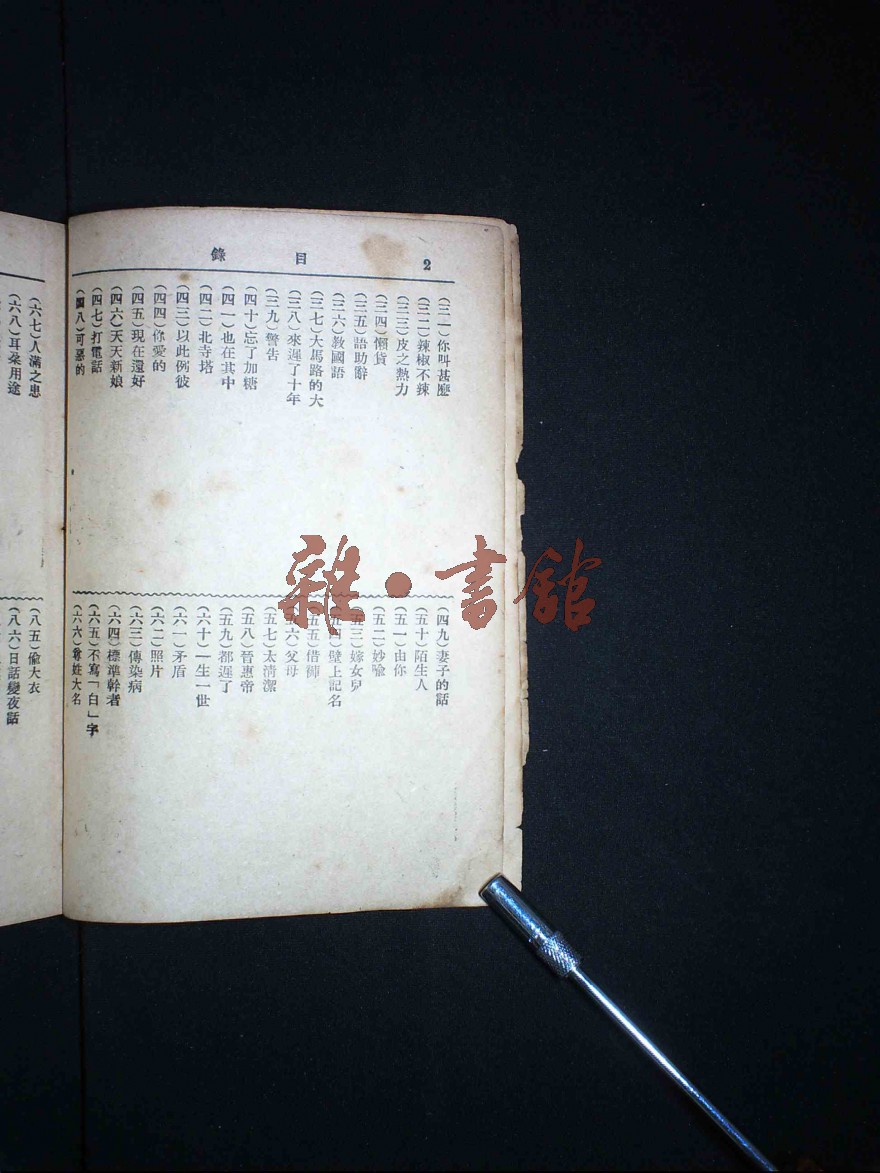 2
目錄
(三一)你叫甚麼
(三二)辣椒不辣
(三三)皮之熱力
(三四)懶貨
(三五)語助辭
(三六)教國語
(三七)大馬路的大
(三八)來遲了十年
(三九)警告
(四十)忘了加糖
(四一)也在其中
(四二)北寺塔
(四三)以此例彼
(四四)你愛的
(四五)現在還好
(四六)天天新娘
(四七)打電話
(四八)可惡的
(四九)妻子的話
(五十)陌生人
(五一)由你
(五二)妙喩
(五三)嫁女兒
(五四)壁上記名
(五五)借
(五六)父母
(五七)太清潔
(五八)晉惠帝
(五九)都遲了
(六十)一生一世
(六一)矛盾
(六二)照片
(六三)傳染病
(六四)標準幹者
(六五)不寫「白」字
(六六)尊姓大名
(六七)人滿之患
(六八)耳朶用途
(八五)偸大衣
(八六)日話變夜話
雜·書館